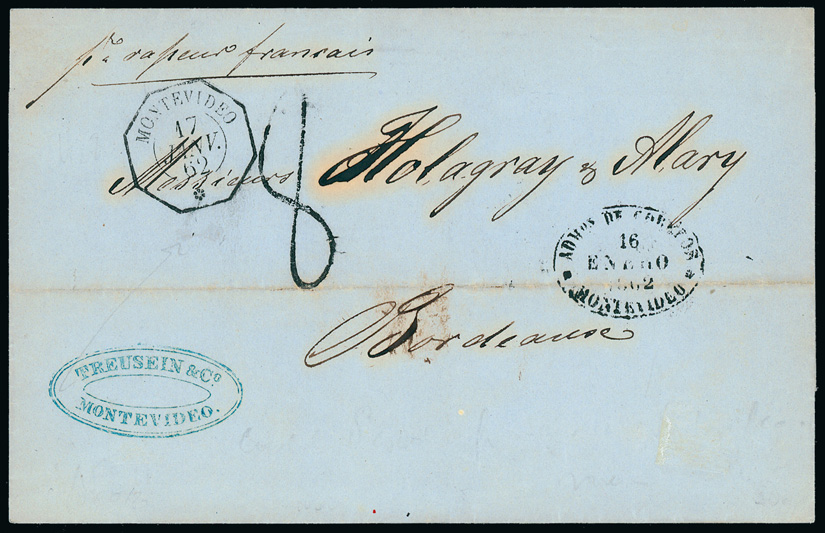 pr. vapeur francais
MONTEVIDEO
17
JANV.
62
8
Messieurs Holagray & Alary
ADMON DE CORREOS
16
ENERO
1862
MONTEVIDEO
Bordeaux
TREUSEIN & Co
MONTEVIDEO.